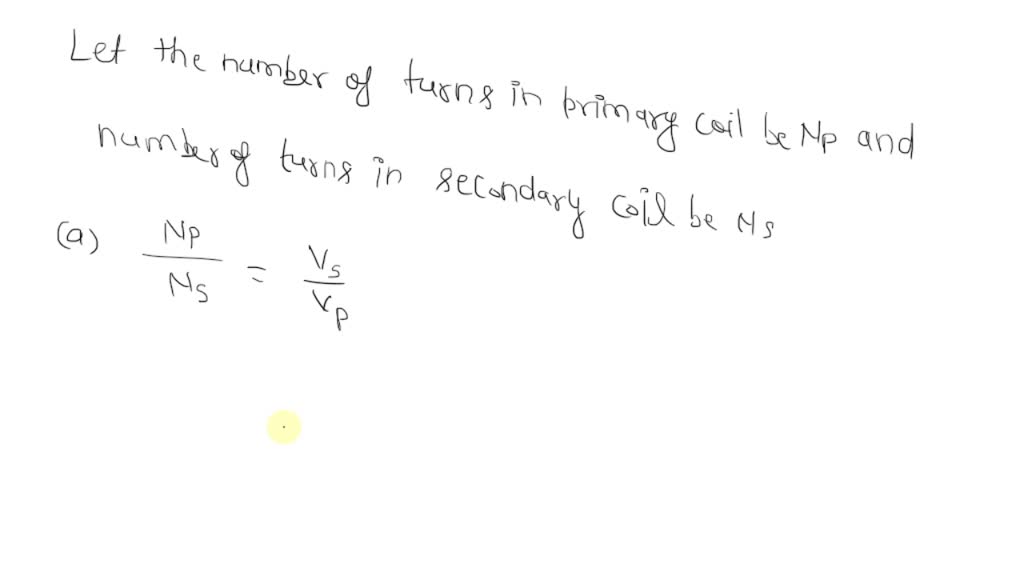 Let the number of turns in primary coil be Np and
number of turns in secondary coil be Ns
(a) Np/Ns = Vs/Vp